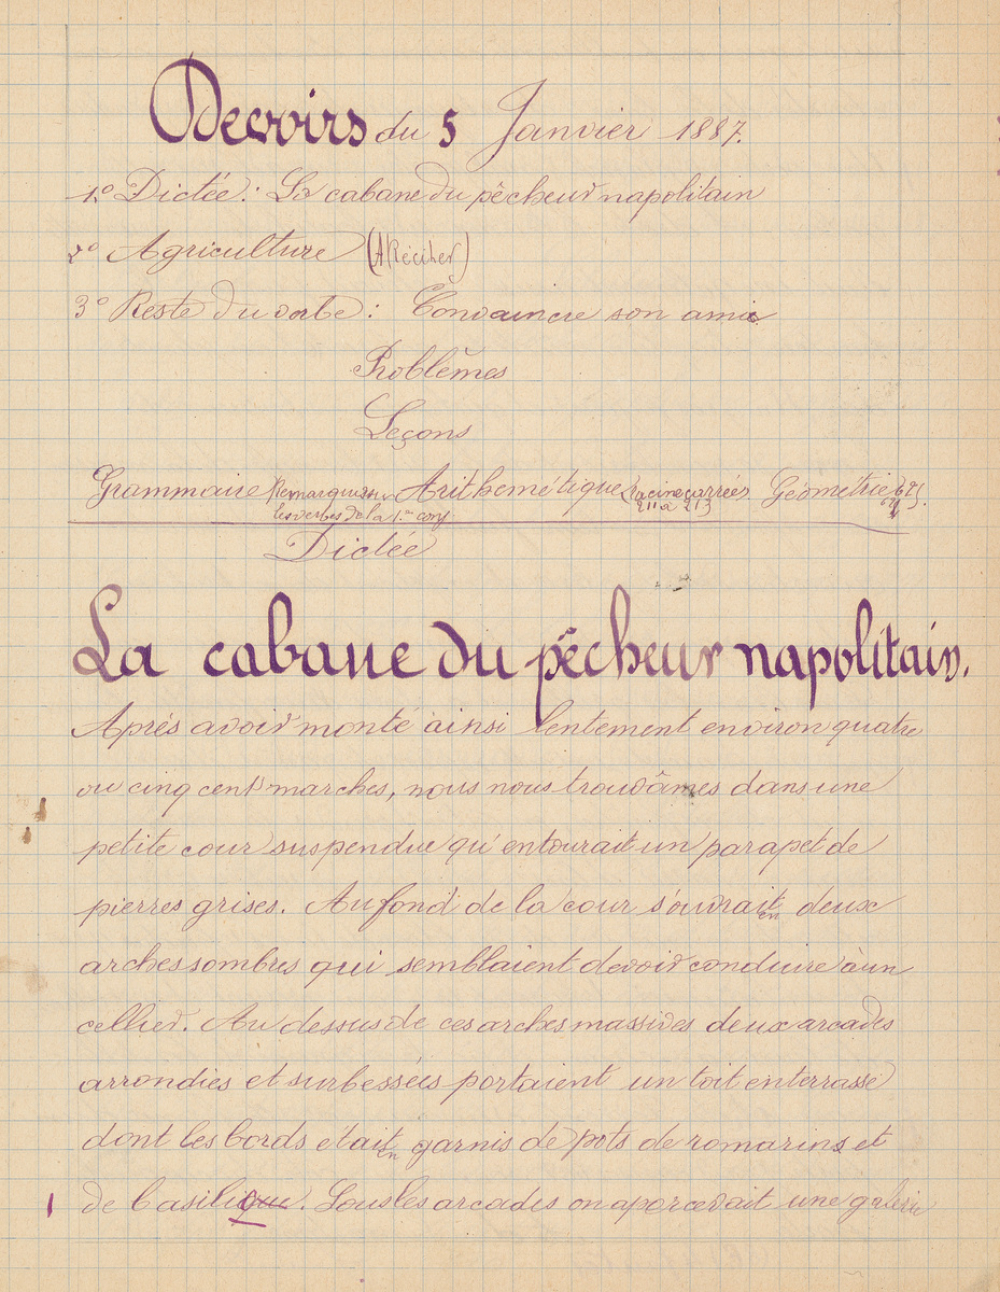 Devoirs du 5 Janvier 1887.
1º Dictée : La cabane du pêcheur napolitain
2º Agriculture (A Réciter)
3º Reste du verbe : Convaincre son ami
Problèmes
Leçons
Grammaire Remarques sur les verbes de la 1re conj. Arithémétique Racine carrées 211 à 213 Géométrie
Dictée
La cabane du pêcheur napolitain.
Après avoir monté ainsi lentement environ quatre
ou cinq cents marches, nous nous trouvâmes dans une
petite cour suspendue qu'entourait un parapet de
pierres grises. Au fond de la cour s'ouvraient deux
arches sombres qui semblaient devoir conduire à un
cellier. Au dessus de ces arches massives deux arcades
arrondies et surbessées portaient un toit en terrasse
dont les bords étaient garnis de pots de romarins et
de basilique. Sous les arcades on apercevait une galerie